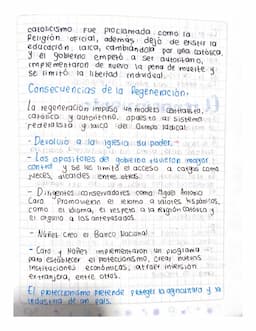 catolicismo fue proclamada como la
Religión oficial, además dejó de existir la
educación laica, cambiandola por una católica,
y el gobierno empezó a ser autoritario,
implementaron de nuevo la pena de muerte y
se limitó la libertad individual.
Consecuencias de la Regeneración.
La regeneración impuso un modelo centralista,
católica y autoritario, opuesto al sistema
federalista y laico del Olimpo radical
- Devolvió a la iglesia su poder.
- Los opositores del gobierno tuvieron mayor
control y se les limitó el acceso a cargos como
jueces, alcaldes entre otras.
- Dirigentes conservadores como Miguel Antonio
Caro Promovieron el retorno a valores hispánicos,
como el idioma, el respeto a la religión católica y
el orgullo a los antepasados.
- Núñez creo el Banco Nacional
- Caro y Núñez implementaron un programa
para establecer el proteccionismo, crear nuevas
instituciones económicas, atraer inversión
extranjera, entre otras.
El proteccionismo pretende proteger la agricultura y la
industria de un país.